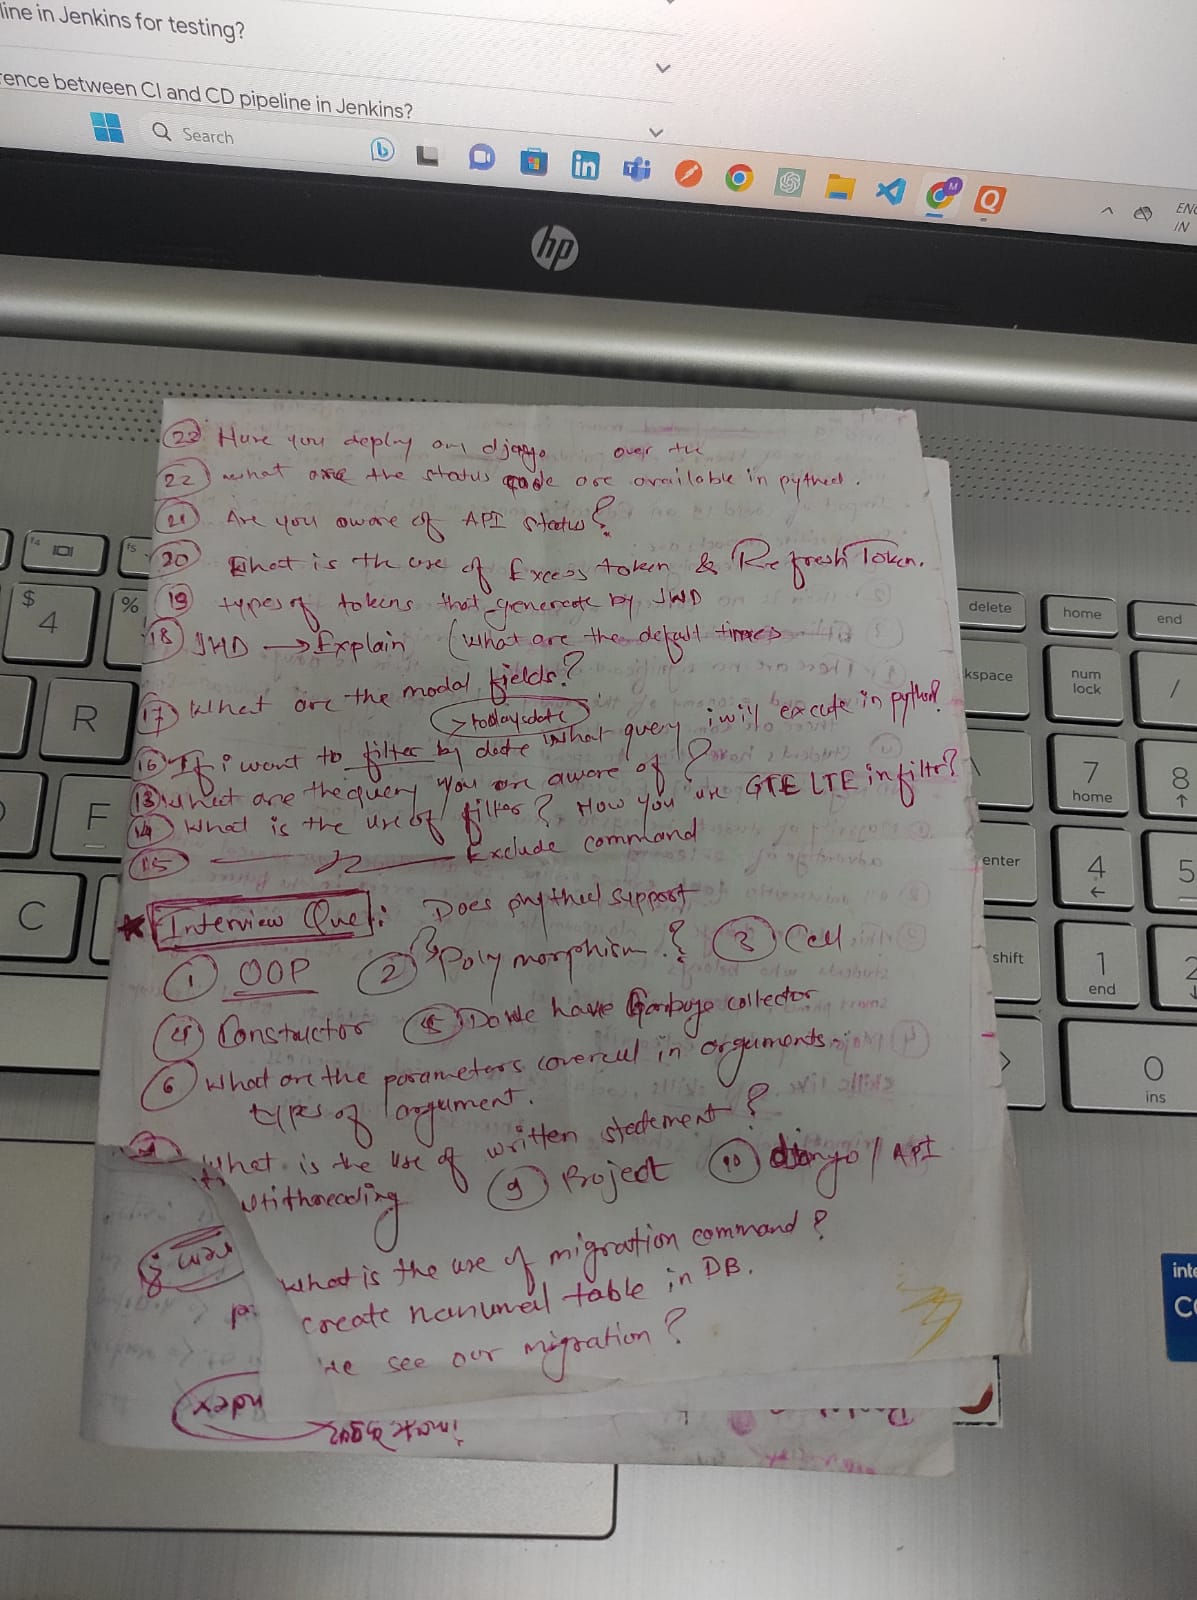 line in Jenkins for testing?
rence between CI and CD pipeline in Jenkins?
Search
ENG
IN
hp
23 Have you deploy our django over the
22 what are the status code are available in pythed.
21 Are you aware of API status?
20 What is the use of Excess token & Refresh Token.
19 types of tokens that generate by JWD
18 JWD → Explain (What are the default times
17 What are the modal fields?
> todaysdate
16 If i want to filter by date what query i will execute in python
13 What are the query you are aware of?
14 What is the use of filter? How you use GTE LTE in filtr?
15 Exclude command
Interview Que: Does pnythed support
1 OOP 2 Polymorphism? 3 Cell
4 Constructor 5 Do We have Garbage collector
6 What are the parameters covered in arguments.
types of argument.
What is the use of written statement?
9 Project 10 django / API
What is the use of migration command?
create table in DB.
see our migration?
delete
home
end
$
4
%
f4
f5
kspace
num
lock
/
R
7
home
8
F
enter
4
5
C
shift
1
end
2
0
ins